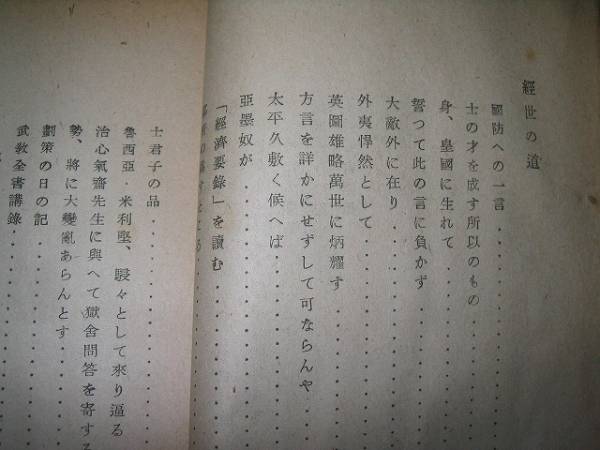 經世の道
國防への一言
士の才を成す所以のもの
身、皇國に生れて
誓つて此の言に負かず
大敵外に在り
外夷悍然として
英圖雄略萬世に炳耀す
方言を詳かにせずして可ならんや
太平久敷く候へば
亞墨奴が
「經濟要錄」を讀む
士君子の品
魯西亞・米利堅、駸々として來り逼る
治心氣齋先生に與へて獄舍問答を寄する
勢、將に大變亂あらんとす
劃策の日の記
武教全書講錄